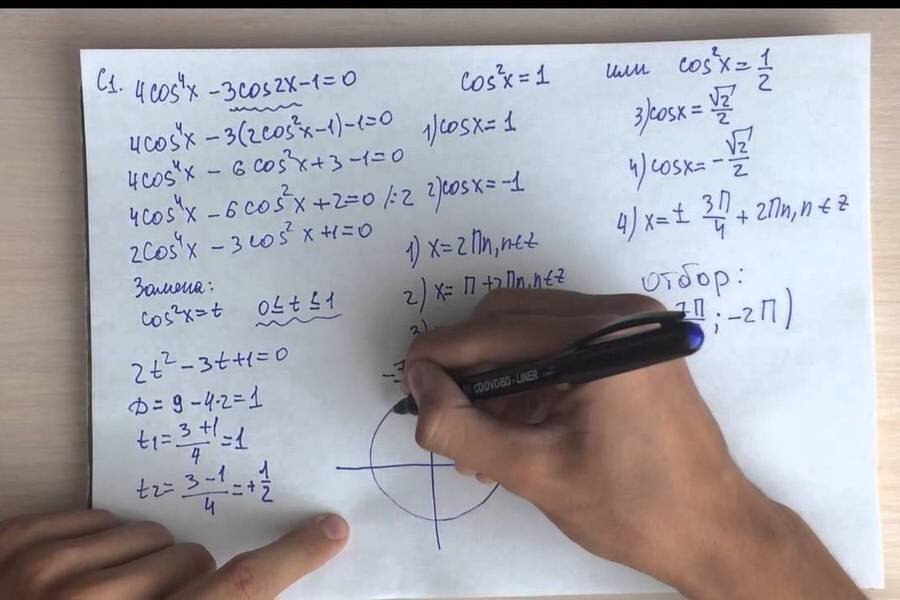 С1. 4cos⁴x - 3cos2x - 1 = 0
4cos⁴x - 3(2cos²x - 1) - 1 = 0
4cos⁴x - 6cos²x + 3 - 1 = 0
4cos⁴x - 6cos²x + 2 = 0 /:2
2cos⁴x - 3cos²x + 1 = 0
Замена:
cos²x = t 0 ≤ t ≤ 1
2t² - 3t + 1 = 0
D = 9 - 4·2 = 1
t₁ = (3+1)/4 = 1
t₂ = (3-1)/4 = +1/2
cos²x = 1 или cos²x = 1/2
1) cosx = 1
2) cosx = -1
1) x = 2Пn, n∈z
2) x = П + 2Пn, n∈z
3)
3) cosx = √2/2
4) cosx = -√2/2
4) x = ± 3П/4 + 2Пn, n∈z
отбор:
; -2П)
CD/DVD/BD - LINER